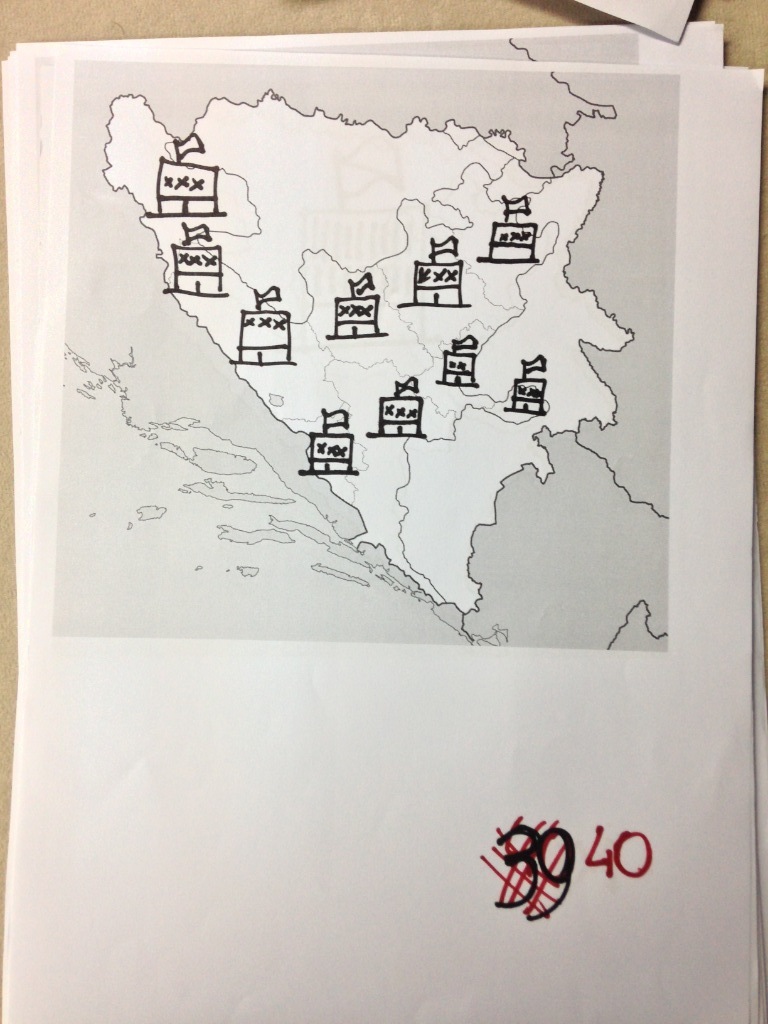 xxx
xxx
xxx
xxx
xxx
xxx
xx
xxx
xxx
xxx
39 40